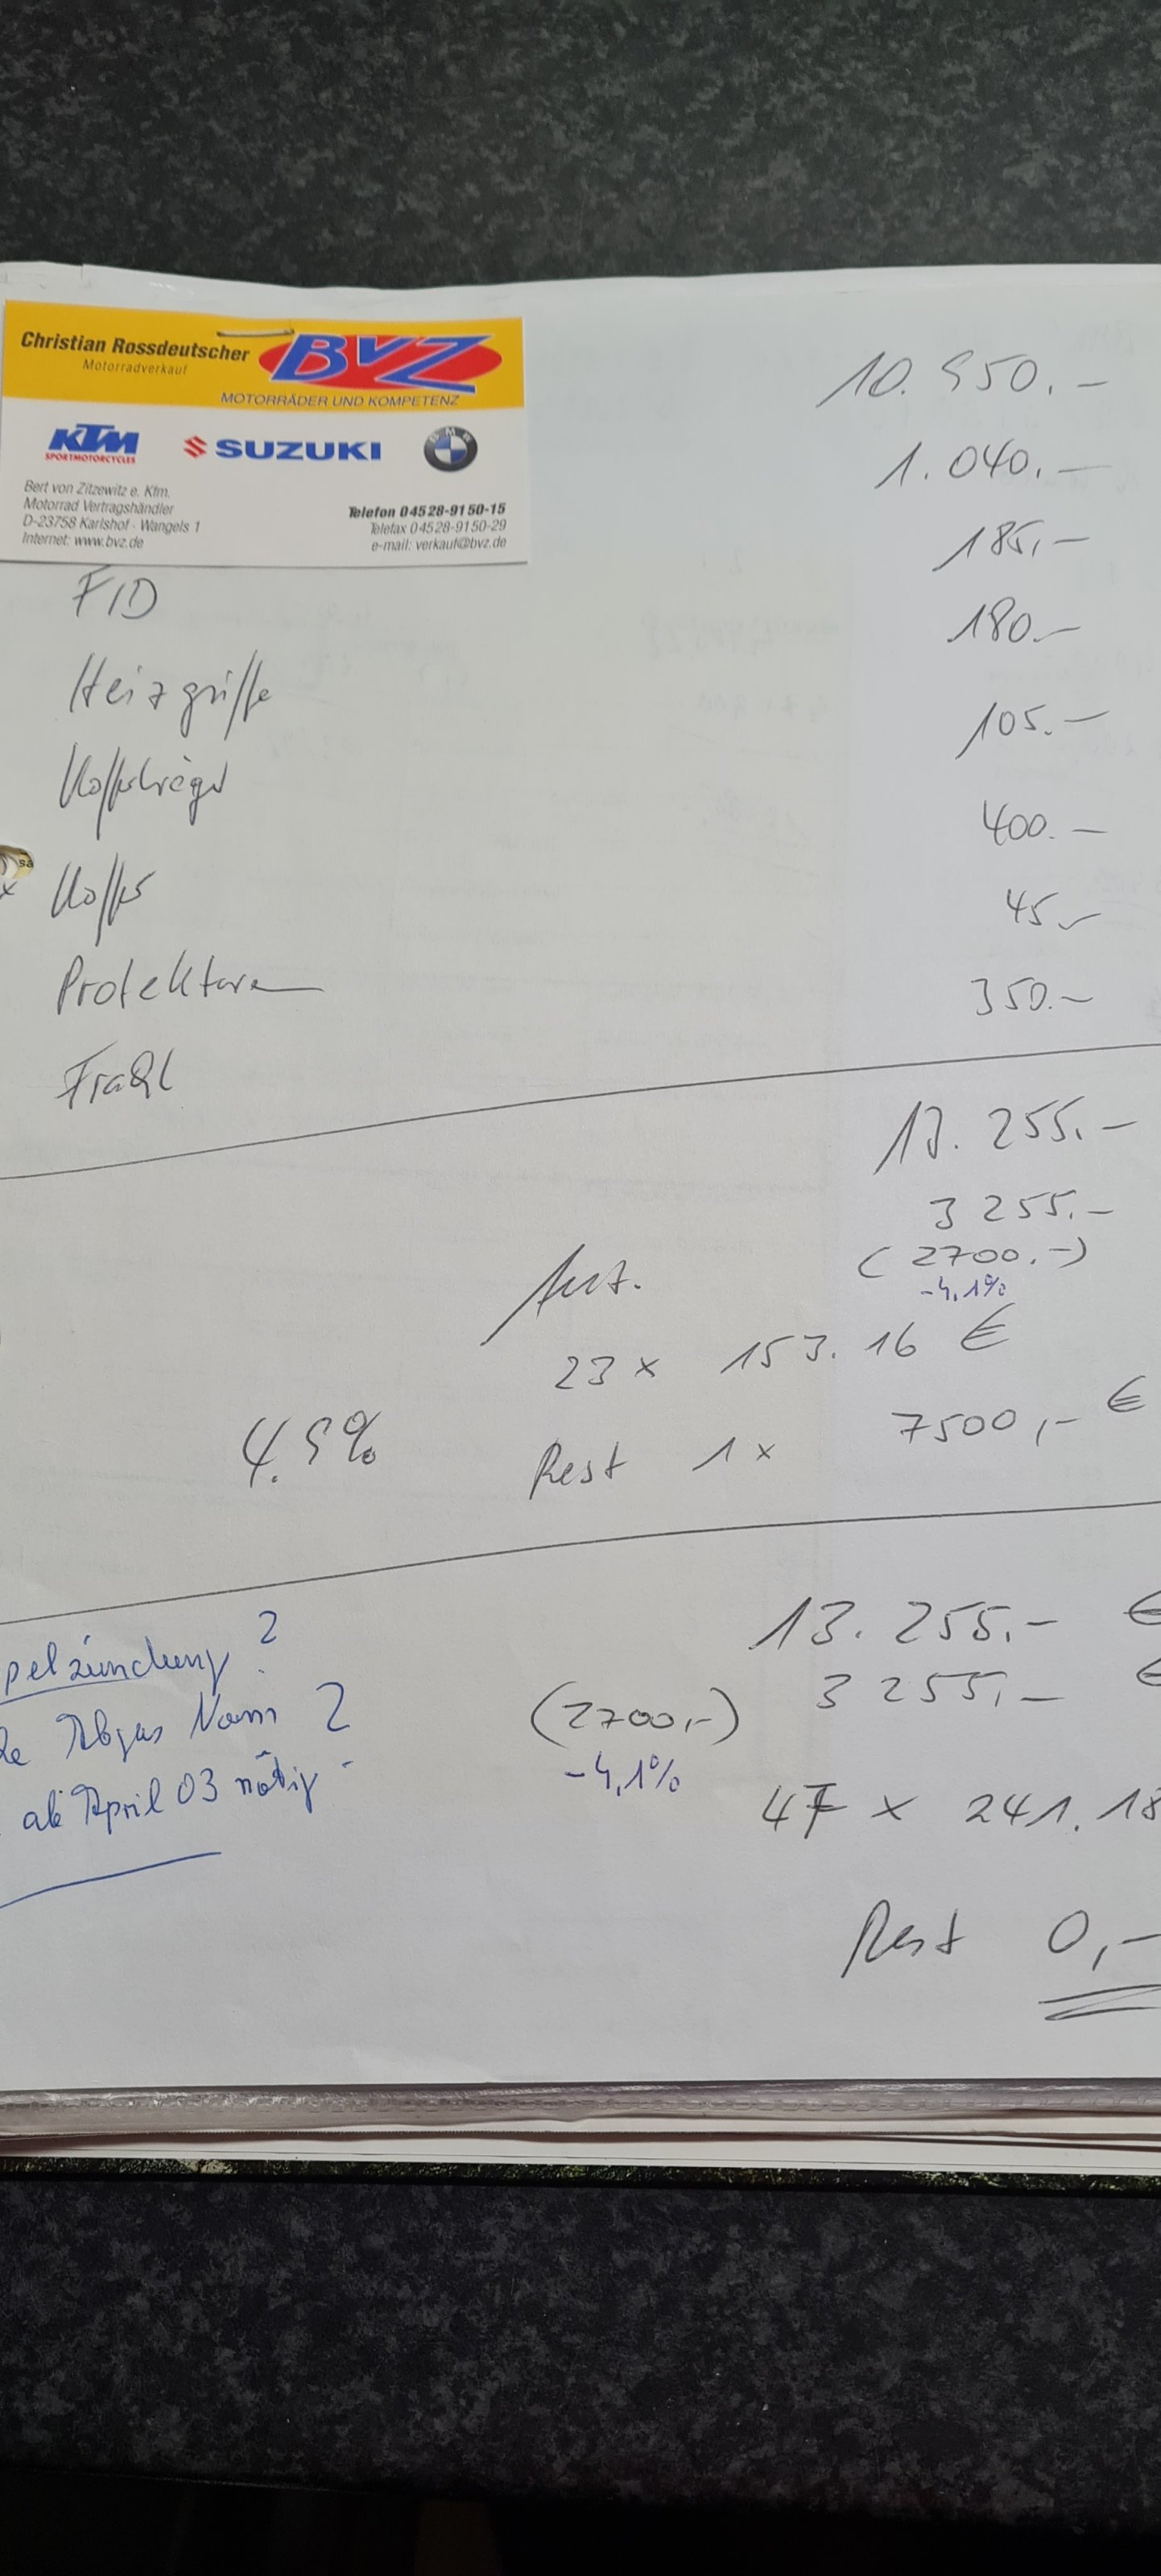 Christian Rossdeutscher
Motorradverkauf
BVZ
MOTORRÄDER UND KOMPETENZ
KTM
SPORTMOTORCYCLES
SUZUKI
BMW
Bert von Zitzewitz e. Kfm.
Motorrad Vertragshändler
D-23758 Karlshof - Wangels 1
Internet: www.bvz.de
Telefon 0 45 28-91 50-15
Telefax 0 45 28-91 50-29
e-mail: verkauf@bvz.de
10.950.-
1.040.-
185,-
FID 180.-
Heizgriffe 105.-
Kofferträger 400.-
Koffer 45.-
Protektoren 350.-
Fracht
13.255.-
3255.-
Anz. (2700.-)
-4,1%
23 x 153.16 €
4.9% Rest 1 x 7500,- €
13.255.- €
3255,- €
pelzündung ?
(2700,-)
-4,1%
Abgas Norm ?
ab April 03 nötig
47 x 241.18
Rest 0,-